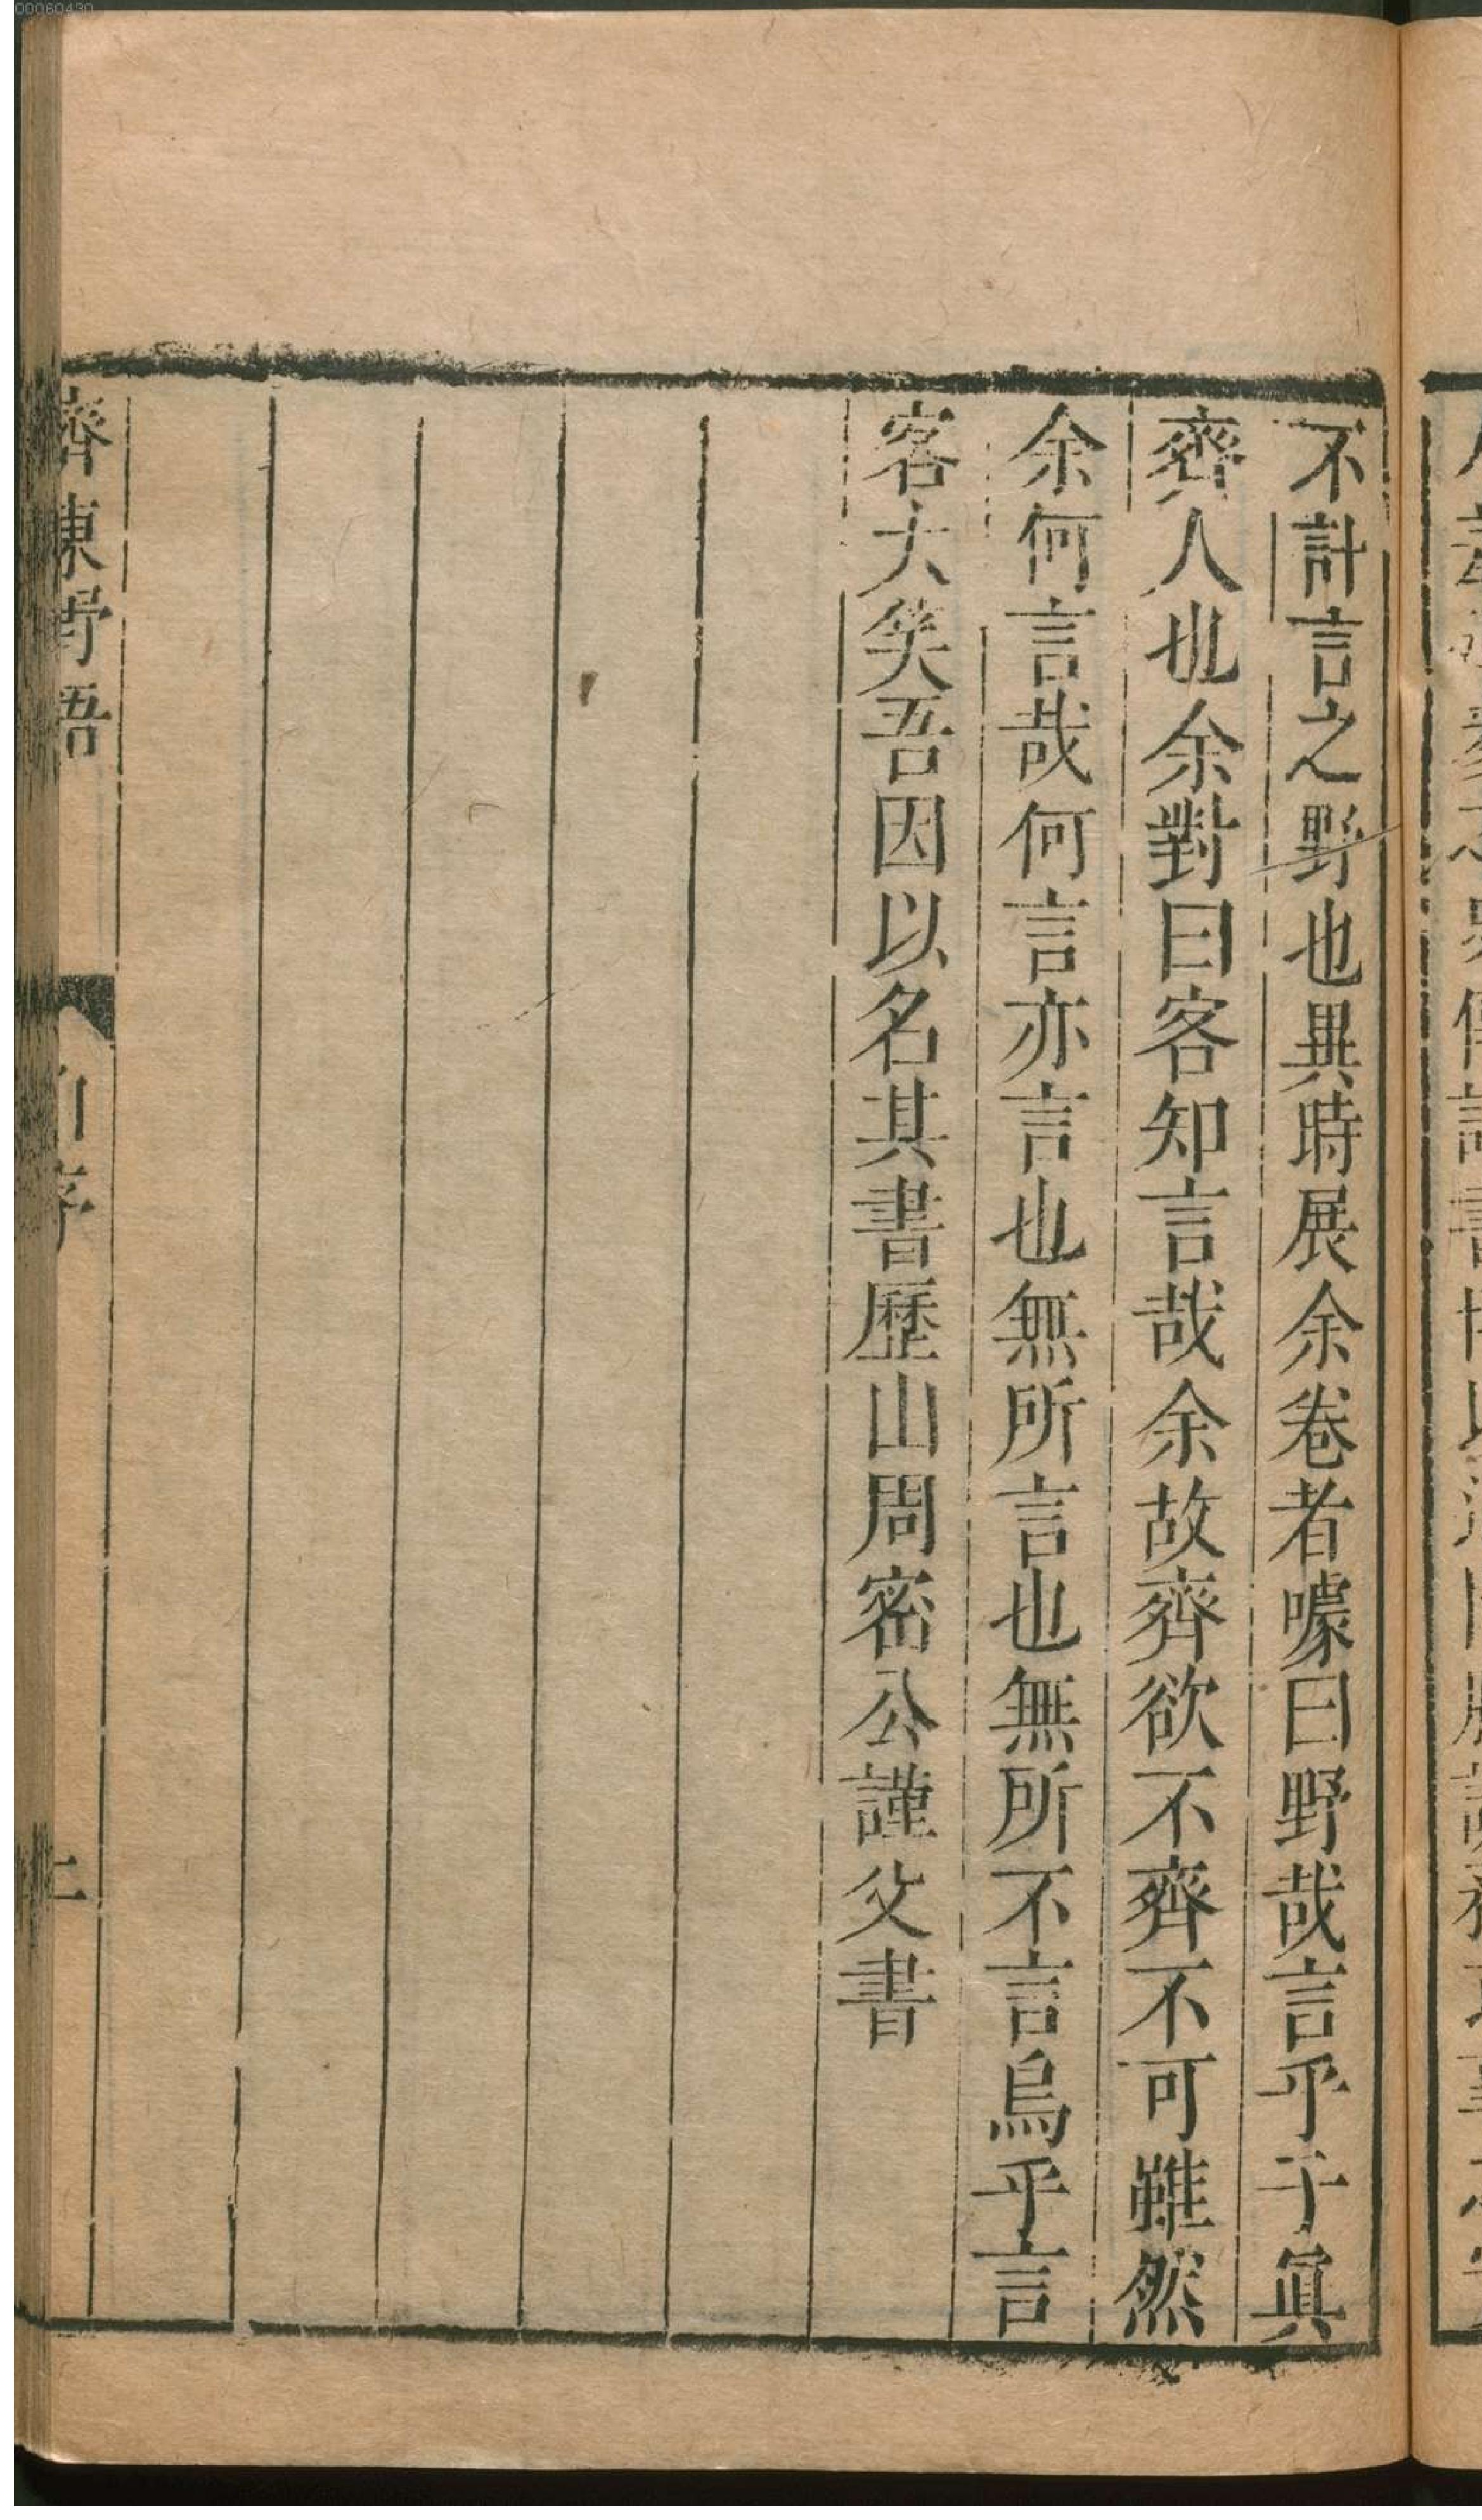 不計言之野也異時展余卷者噱曰野哉言乎子眞
齊人也余對曰客知言哉余故齊欲不齊不可雖然
余何言哉何言亦言也無所言也無所不言烏乎言
客大笑吾因以名其書歷山周密公謹父書
齊東野語
自序
二
00060430